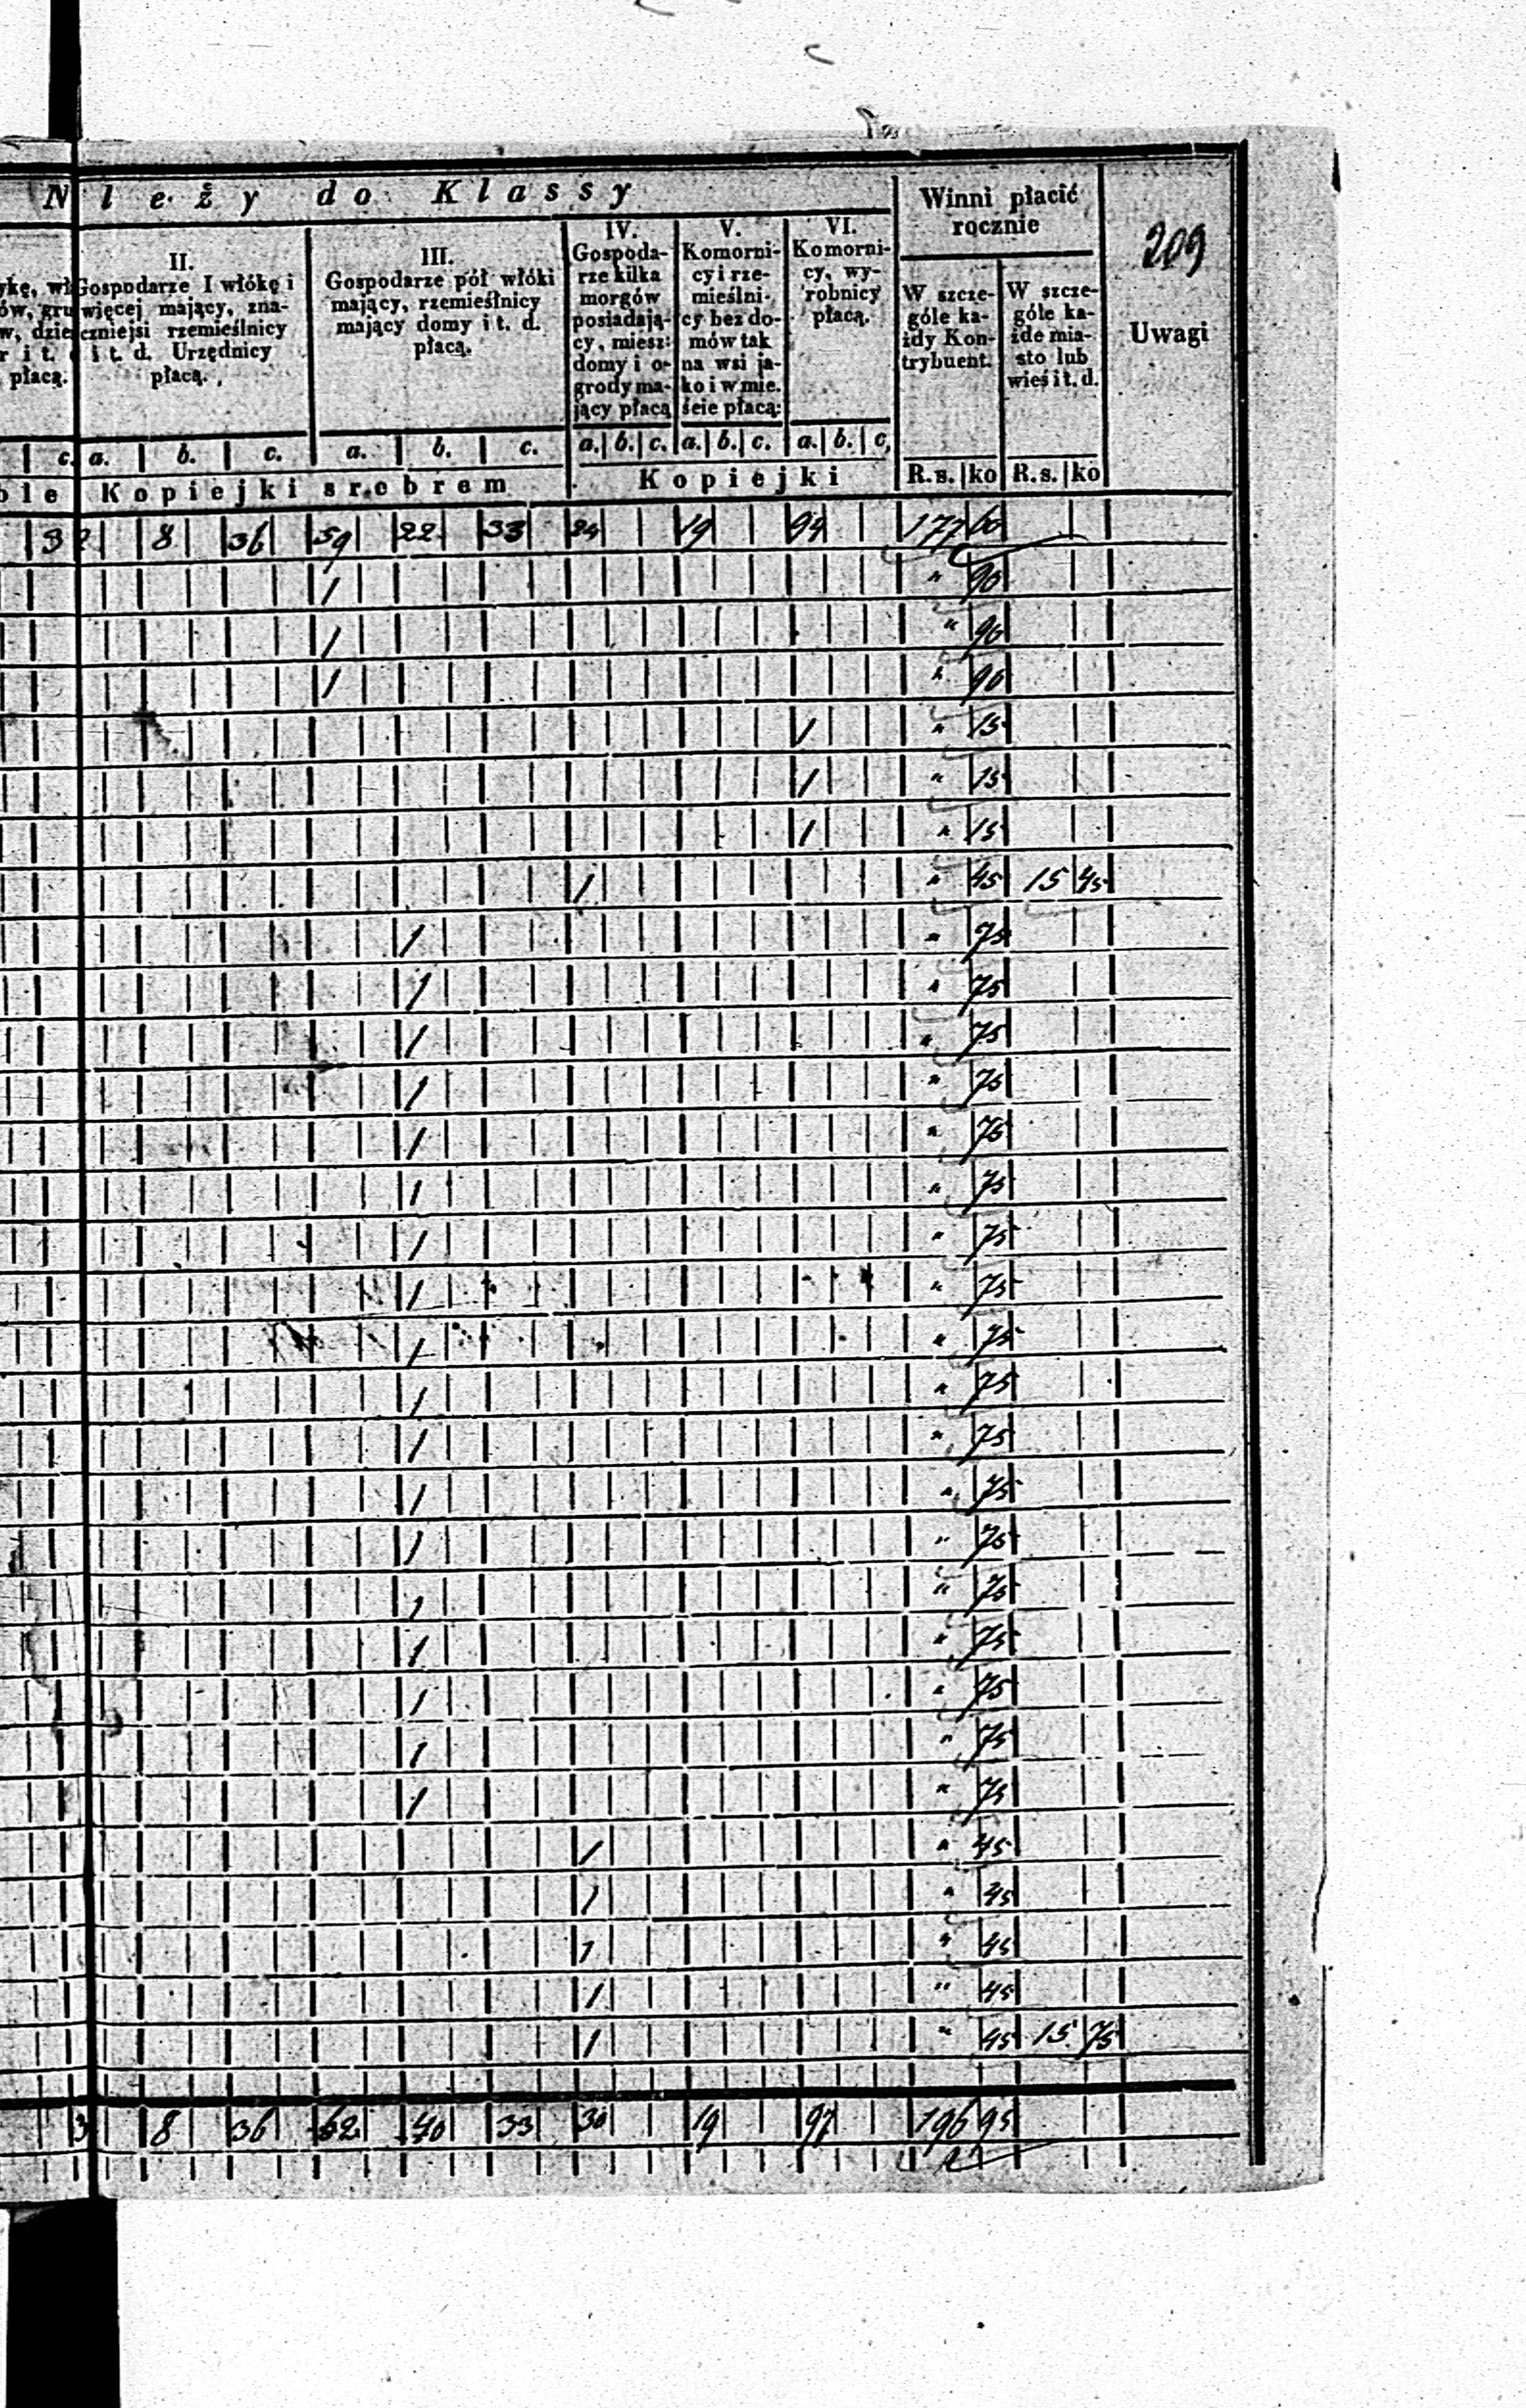 N leży do Klassy
Winni płacić
rocznie
209
Uwagi
II.
Gospodarze I włókę i
więcej mający, zna-
czniejsi rzemieślnicy
i t. d. Urzędnicy
płacą.
III.
Gospodarze pół włóki
mający, rzemieślnicy
mający domy i t. d.
płacą.
IV.
Gospoda-
rze kilka
morgów
posiadają-
cy, miesz:
domy i o-
grody ma-
jący płacą
V.
Komorni-
cy i rze-
mieślni-
cy bez do-
mów tak
na wsi ja-
ko i w mie.
ście płacą:
VI.
Komorni-
cy, wy-
robnicy
płacą.
W szcze-
góle ka-
żdy Kon-
trybuent.
W szcze-
góle ka-
żde mia-
sto lub
wieś i t. d.
płacą.
c. a. b. c. a. b. c. a. b. c. a. b. c. a. b. c.
Kopiejki srebrem Kopiejki R.s. ko R.s. ko
8 36 59 22 33 24 19 94 177 60
1 " 90
1 " 90
1 " 90
1 " 15
1 " 15
1 " 15
1 " 45 15 45
1 " 75
1 " 75
1 " 75
1 " 75
1 " 75
1 " 75
1 " 75
1 " 75
1 " 75
1 " 75
1 " 75
1 " 75
1 " 75
1 " 75
1 " 75
1 " 75
1 " 75
1 " 75
1 " 45
1 " 45
1 " 45
1 " 45
1 " 45 15 75
3 8 36 62 40 33 30 19 97 196 95